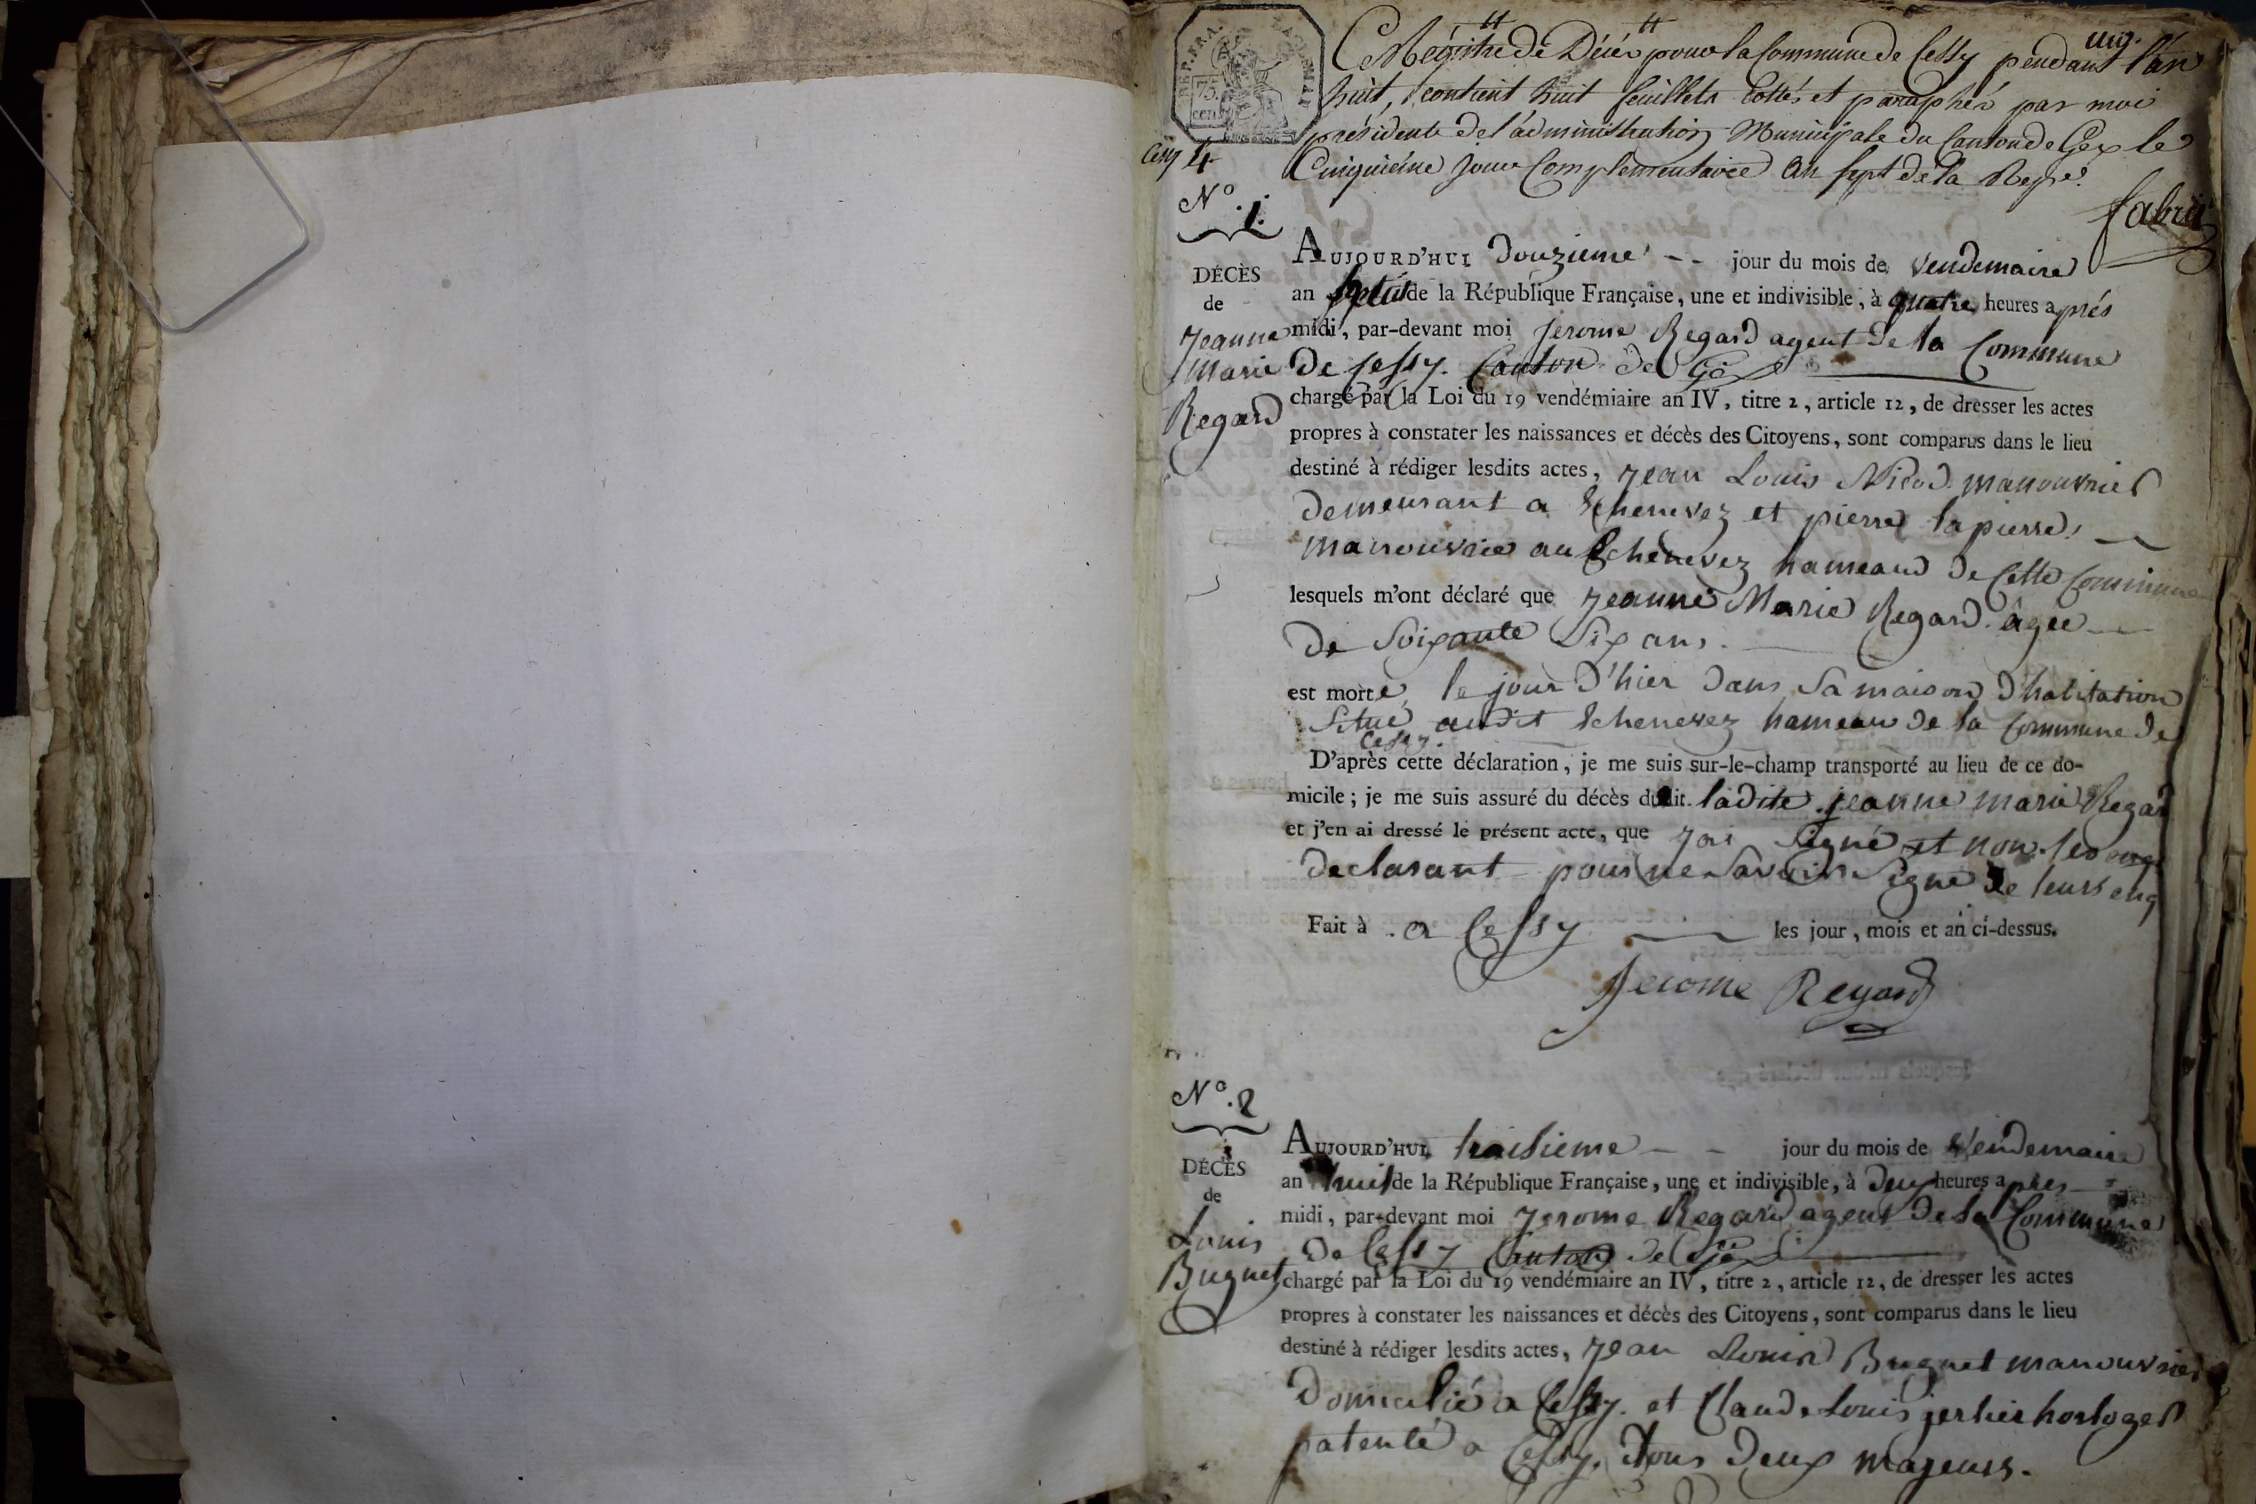 ung.
Ce Régistre de Décés pour la Commune de Cessy pendant l'an
huit, contient huit feuillets Cottés et paraphés par moi
présidente de l'administration Municipale du Canton de Gex le
Cinquiéme Jour Complementaire an sept de la Repe.
fabri
REP. FRA.
75.
cent
Cessy 4
N°. 1.
DÉCÈS
de
Jeanne
Marie
Regard
AUJOURD'HUI Douzieme -- jour du mois de Vendemaire
an huit de la République Française, une et indivisible, à quatre heures aprés
midi, par-devant moi Jerome Regard agent de la Commune
De Cessy. Canton de Gex
chargé par la Loi du 19 vendémiaire an IV, titre 2, article 12, de dresser les actes
propres à constater les naissances et décès des Citoyens, sont comparus dans le lieu
destiné à rédiger lesdits actes, Jean Louis Nicod manouvrier
demeurant a Echenevez et pierre lapierre
manouvrie au Echenevez hameaud de Cette Commune
lesquels m'ont déclaré que Jeanne Marie Regard âgée
de Soixante Six ans.
est morte le jour d'hier dans Sa maison d'habitation
Situé audit Echenevez hameau de la Commune de
Cessy.
D'après cette déclaration, je me suis sur-le-champ transporté au lieu de ce do-
micile; je me suis assuré du décès dudit ladite jeanne marie Regard
et j'en ai dressé le présent acte, que J'ai Signé et non les
declarant pour ne Savoir Signe de leurs enq
Fait à a Cessy les jour, mois et an ci-dessus.
Jerome Regard
N°. 2
DÉCÈS
de
Louis
Buguet
AUJOURD'HUI traisieme - - jour du mois de Vendemaire
an huit de la République Française, une et indivisible, à Deux heures apres
midi, par-devant moi Jerome Regard agent de la Commune
De Cessy Canton de Gex
chargé par la Loi du 19 vendémiaire an IV, titre 2, article 12, de dresser les actes
propres à constater les naissances et décès des Citoyens, sont comparus dans le lieu
destiné à rédiger lesdits actes, Jean Louis Buguet manouvrier
Domicilié a Cessy. et Claude Louis gerlier horloger
patenté a Cessy. tous Deux majeurs.